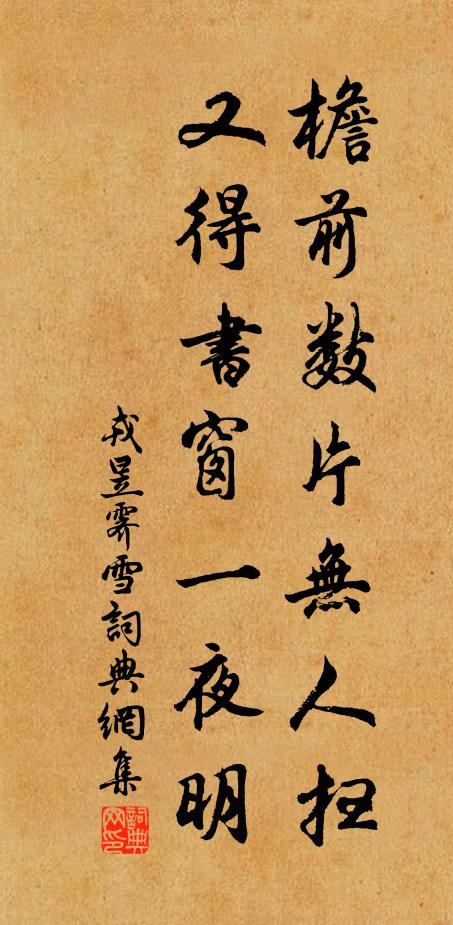 檐前數片無人扫
又得書窗一夜明
戎昱霽雪詞典網集
詞典网印